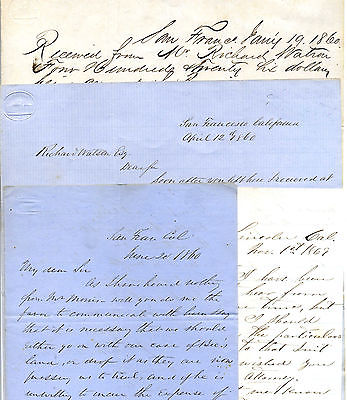 San Franco Jany 19, 1860.
Received from Mr Richard Watson
Four Hundred & Seventy Six dollars
San Francisco California
April 12th 1860
Richard Watson Esq
Dear Sir
Soon after you left here I received at
San Fran Cal
June 20 1860
My dear Sir
As I have heard nothing
from Mr Morris will you do me the
favor to communicate with him & say
that it is necessary that we should
either go on with our case of
land, or drop it as they are now
pressing us to trial, and if he is
unwilling to incur the expense of
Lincoln, Cal.
Nov. 1st 1867
I have been
have room
times, but
I should
the particulars
to that suit
wished your
Attorney